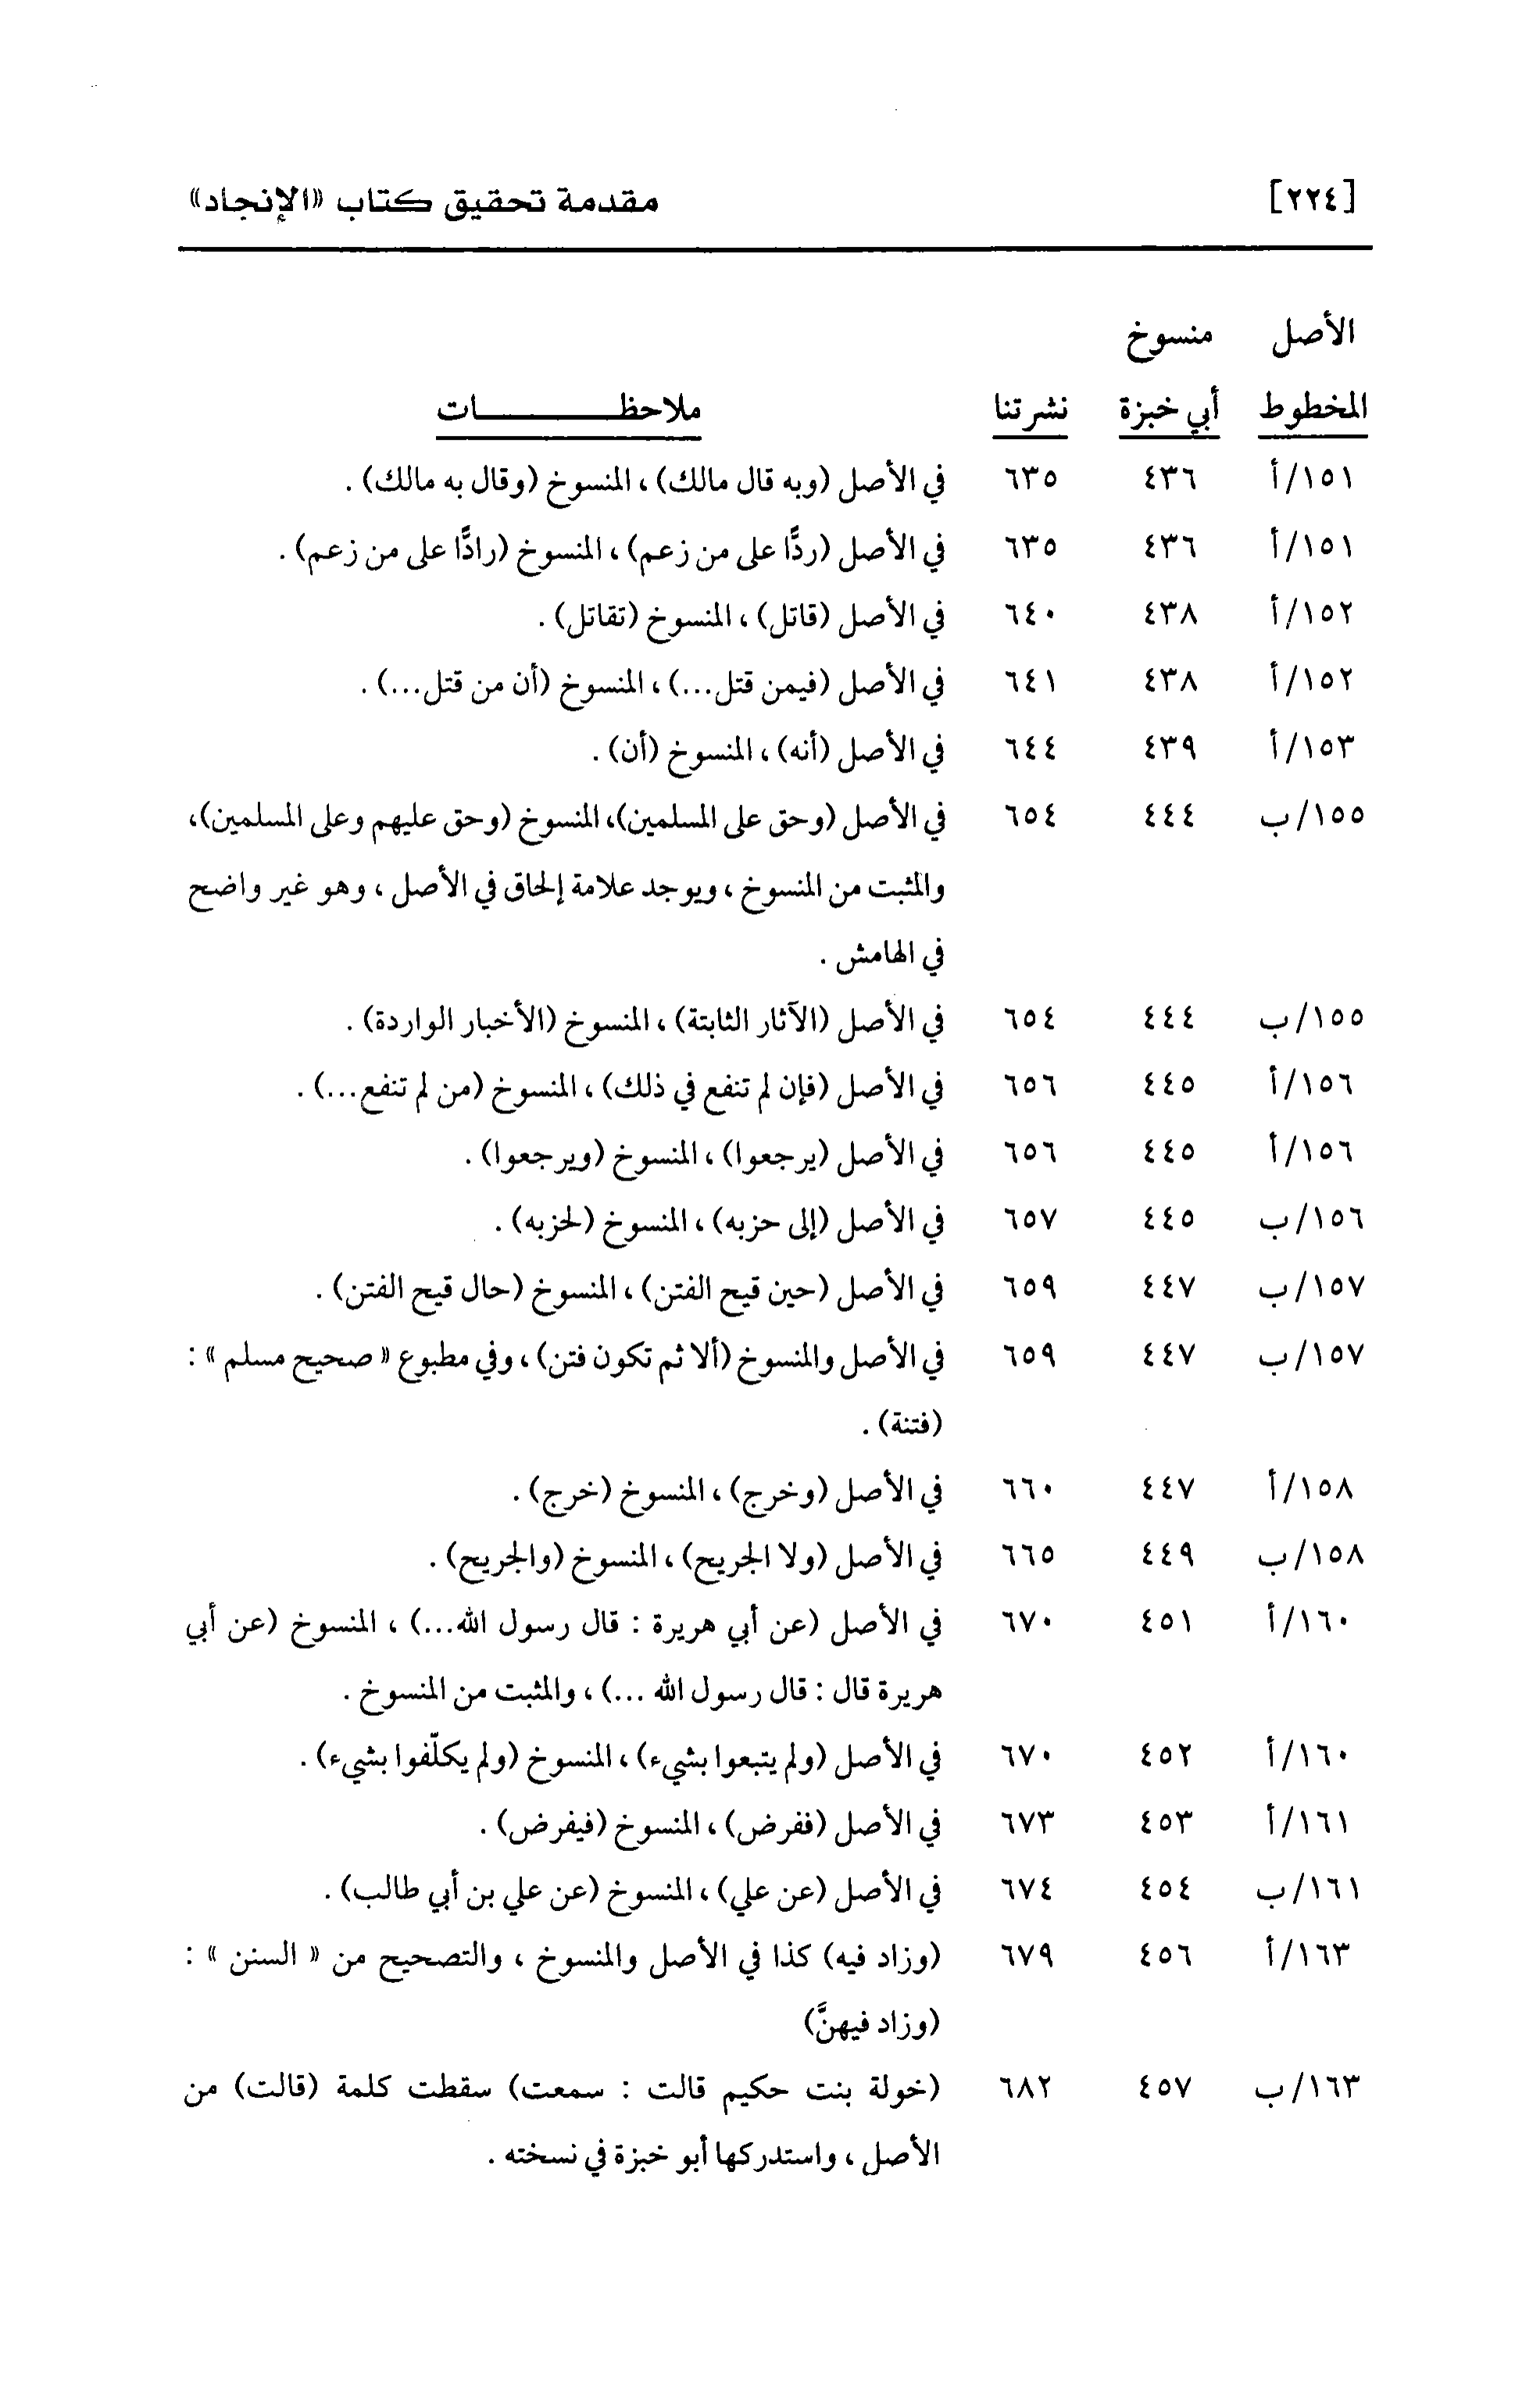 [٢٢٤] مقدمة تحقيق كتاب «الإنجاد»
الأصل منسوخ
المخطوط أبي خبزة نشرتنا ملاحظـــــــــات
١٥١/أ ٤٣٦ ٦٣٥ في الأصل (وبه قال مالك)، المنسوخ (وقال به مالك).
١٥١/أ ٤٣٦ ٦٣٥ في الأصل (ردًّا على من زعم)، المنسوخ (رادًّا على من زعم).
١٥٢/أ ٤٣٨ ٦٤٠ في الأصل (قاتل)، المنسوخ (تقاتل).
١٥٢/أ ٤٣٨ ٦٤١ في الأصل (فيمن قتل...)، المنسوخ (أن من قتل...).
١٥٣/أ ٤٣٩ ٦٤٤ في الأصل (أنه)، المنسوخ (أن).
١٥٥/ب ٤٤٤ ٦٥٤ في الأصل (وحق على المسلمين)، المنسوخ (وحق عليهم وعلى المسلمين)،
والمثبت من المنسوخ، ويوجد علامة إلحاق في الأصل، وهو غير واضح
في الهامش.
١٥٥/ب ٤٤٤ ٦٥٤ في الأصل (الآثار الثابتة)، المنسوخ (الأخبار الواردة).
١٥٦/أ ٤٤٥ ٦٥٦ في الأصل (فإن لم تنفع في ذلك)، المنسوخ (من لم تنفع...).
١٥٦/أ ٤٤٥ ٦٥٦ في الأصل (يرجعوا)، المنسوخ (ويرجعوا).
١٥٦/ب ٤٤٥ ٦٥٧ في الأصل (إلى حزبه)، المنسوخ (لحزبه).
١٥٧/ب ٤٤٧ ٦٥٩ في الأصل (حين قيح الفتن)، المنسوخ (حال قيح الفتن).
١٥٧/ب ٤٤٧ ٦٥٩ في الأصل والمنسوخ (ألا ثم تكون فتن)، وفي مطبوع «صحيح مسلم»:
(فتنة).
١٥٨/أ ٤٤٧ ٦٦٠ في الأصل (وخرج)، المنسوخ (خرج).
١٥٨/ب ٤٤٩ ٦٦٥ في الأصل (ولا الجريح)، المنسوخ (والجريح).
١٦٠/أ ٤٥١ ٦٧٠ في الأصل (عن أبي هريرة : قال رسول الله...)، المنسوخ (عن أبي
هريرة قال : قال رسول الله ...)، والمثبت من المنسوخ.
١٦٠/أ ٤٥٢ ٦٧٠ في الأصل (ولم يتبعوا بشيء)، المنسوخ (ولم يكلّفوا بشيء).
١٦١/أ ٤٥٣ ٦٧٣ في الأصل (ففرض)، المنسوخ (فيفرض).
١٦١/ب ٤٥٤ ٦٧٤ في الأصل (عن علي)، المنسوخ (عن علي بن أبي طالب).
١٦٣/أ ٤٥٦ ٦٧٩ (وزاد فيه) كذا في الأصل والمنسوخ، والتصحيح من «السنن»:
(وزاد فيهنَّ)
١٦٣/ب ٤٥٧ ٦٨٢ (خولة بنت حكيم قالت : سمعت) سقطت كلمة (قالت) من
الأصل، واستدركها أبو خبزة في نسخته.